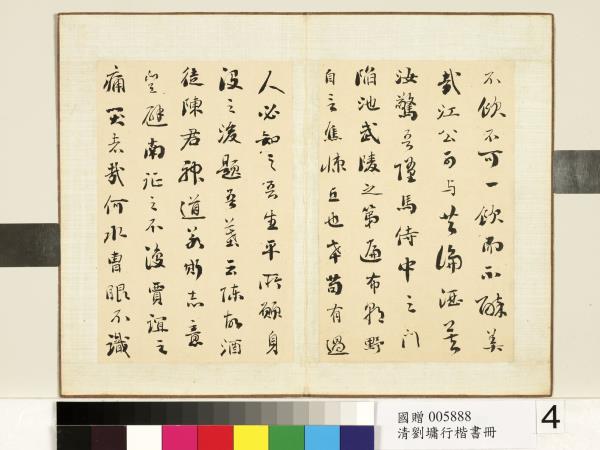 不飲不可一飲而不醉美
哉江公可與共論酒矣
汝驚吾墮馬侍中之門
陷池武陵之第遍布朝野
自言焦悚丘也幸苟有過
人必知之吾生平所願身
沒之後題吾墓云陳故酒
徒陳君神道若斯志意
豈避南征之不復賈誼之
痛哭者哉何水曹眼不識
國贈 005888
清劉墉行楷書冊
4